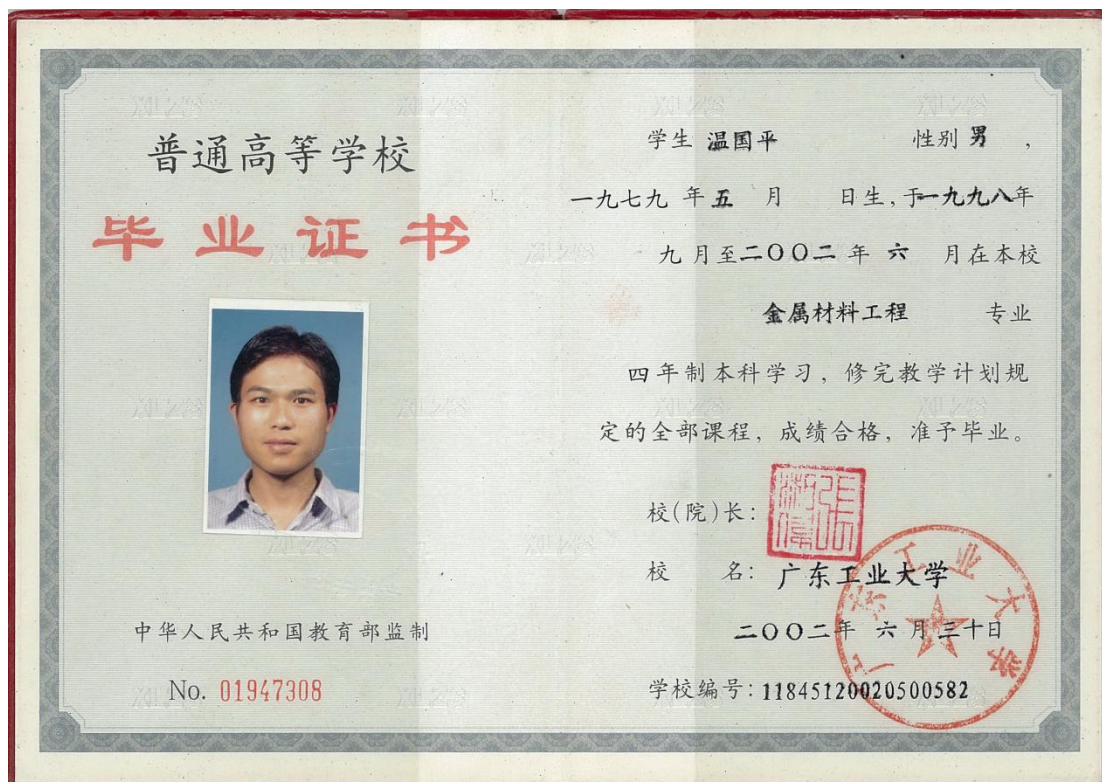 普通高等学校
毕业证书
中华人民共和国教育部监制
No. 01947308
学生 温国平 性别 男 ,
一九七九 年 五 月 日生,于一九九八年
九 月至二〇〇二 年 六 月在本校
金属材料工程 专业
四 年制本科学习,修完教学计划规
定的全部课程,成绩合格,准予毕业。
校(院)长:
校 名: 广东工业大学
二〇〇二年 六 月三十日
学校编号: 11845120020500582
广东工业大学